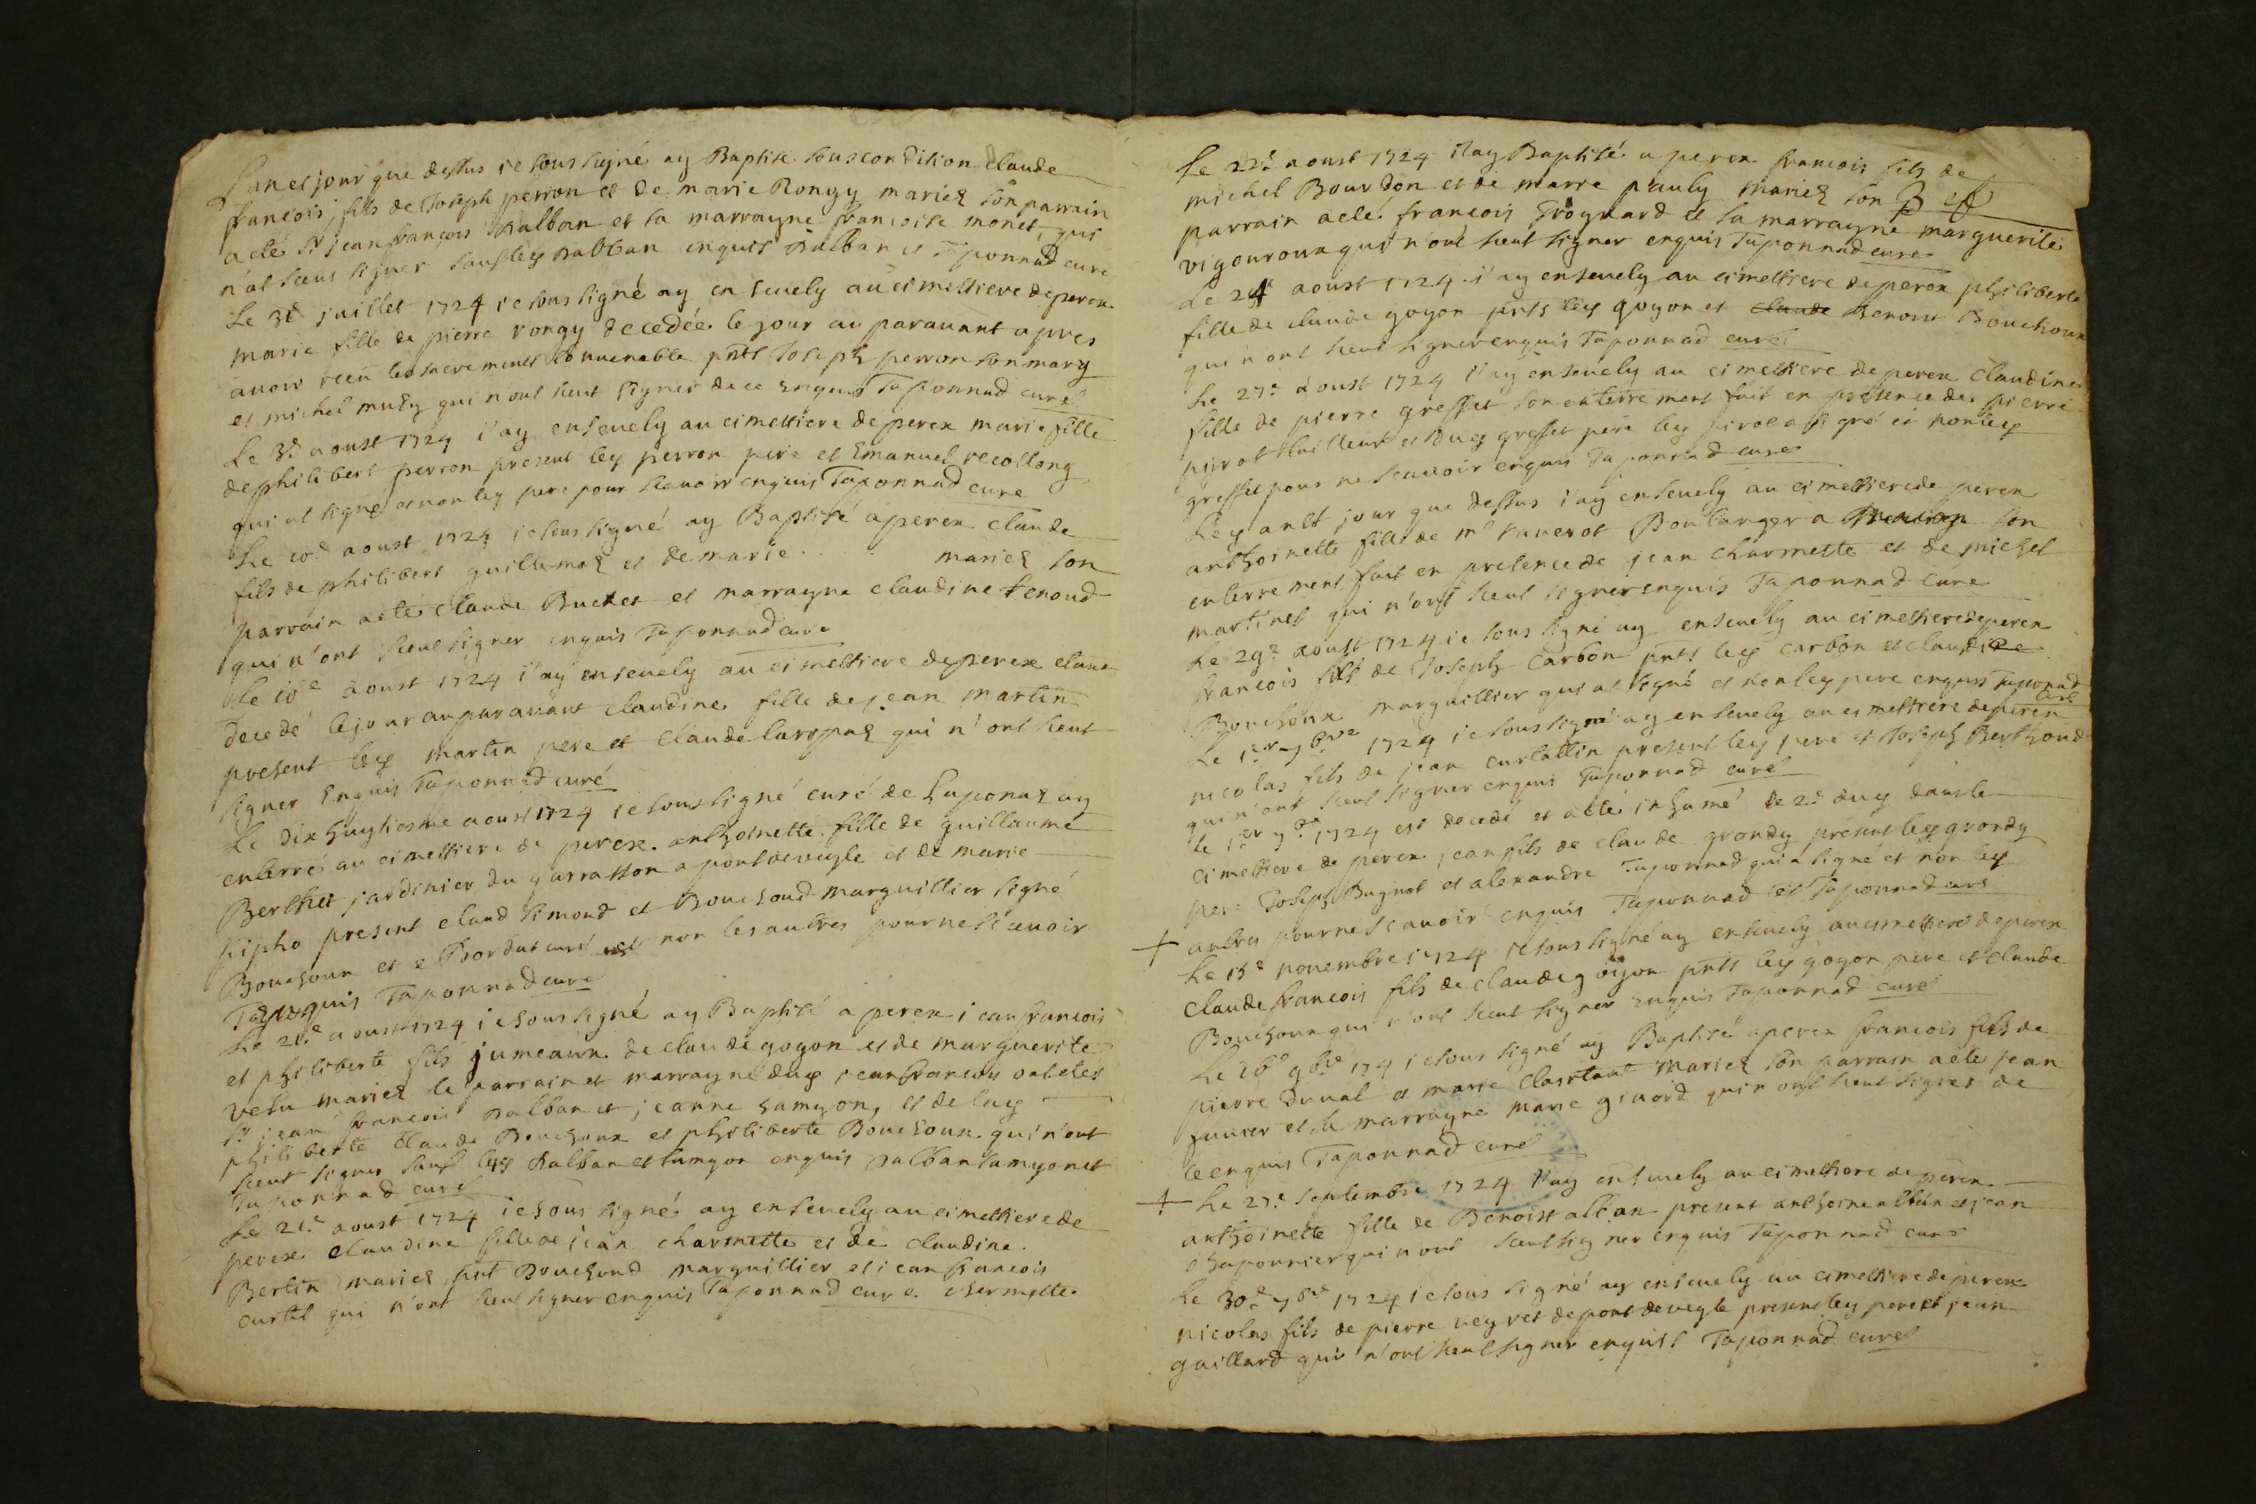 L'an et jour que dessus ie sous signé ay Baptisé sous condition claude
francois fils de Joseph perron et de marie Rongy mariez son parrain
a eté Sr jean françois Dalban et sa marrayne francoise monet, qui
n'at sceus signer sauf ley dalban enquis Dalban et Taponnad curé
Le 31e juillet 1724 ie sous signé ay ensevely au cimettiere de perex
marie fille de pierre rongy decedée le jour au paravant apres
avoir receu les sacrements convenable pnts Joseph perron son mary
et michel muty qui n'ont sceut signer de ce Enquis Taponnad curé
Le 3e aoust 1724 i'ay ensevely au cimettiere de perex marie fille
de philibert perron present ley perron pere et Emanuel recollong
qui at signé et non ley pere pour scavoir enquis Taponnad curé
Le 10e aoust 1724 ie sous signé ay Baptisé a perex claude
fils de philibert guillemaz et de marie mariez son
parrain a eté claude Buchet et marrayne claudine tenoud
qui n'ont sceut signer enquis Taponnad curé
Le 16e aoust 1724 i'ay ensevely au cimettiere de perex
decedé le jour auparavant claudine fille de jean martin
present ley martin pere et claude qui n'ont sceut
signer Enquis Taponnad curé
Le dix huytiesme aoust 1724 ie sous signé curé de Laponaz ay
enterré au cimettiere de perex anthoinette fille de guillaume
Berthet jardinier du garratton a pont de veyle et de marie
pipho present claud simond et Bouchoud marguillier signé
Bouchoux et curé et non les autres pour ne scavoir
enquis Taponnad curé
Le 21e aoust 1724 ie sous signé ay Baptisé a perex i ean francois
et philiberte fils jumeaux de claude goyon et de marguerite
velu mariez le parrain et marrayne duy jean francois
Sr jean francois dalban et jeanne samyon, et de lay
philiberte claude Bouchoux et philiberte Bouchoux qui n'ont
sceut signer sauf leys dalban et samyon enquis dalban samyon et
Taponnad curé
Le 21e aoust 1724 ie sous signé ay ensevely au cimettiere de
perex claudine fille de jean charmette et de claudine
Bertin mariez pnt Bouchoud marguillier et i ean francois
curtil qui n'ont sceut signer enquis Taponnad curé charmette
Le 22e aoust 1724 i'ay Baptisé a perex francois fils de
michel Bourdon et de marie pauly mariez son
parrain a eté francois Grognard et sa marrayne marguerite
vigouroux qui n'ont sceut signer enquis Taponnad curé
Le 24e aoust 1724 i'ay ensevely au cimettiere de perex philiberte
fille de claude goyon pnts ley goyon et claude Benoist Bouchoux
qui n'ont sceut signer enquis Taponnad curé
Le 27e aoust 1724 i'ay ensevely au cimettiere de perex claudine
fille de pierre greffet son enterrement fait en presence de pierre
pirot tailleur et duy greffet pere ley pirot a signé et non ley
greffet pour ne scavoir enquis Taponnad curé
Ley an et jour que dessus i'ay ensevely au cimettiere de perex
anthoinette fille de mr Boulanger a macon son
enterrement fait en presence de jean charmette et de michel
martinet qui n'ont sceut signer enquis Taponnad curé
Le 29e aoust 1724 ie sous signé ay ensevely au cimettiere de perex
francois fils de Joseph Carbon pnts ley carbon et claudine
Bouchoux marguillier qui at signé et non ley pere enquis Taponnad
curé
Le 1er 7bre 1724 ie sous signé ay ensevely au cimettiere de perex
nicolas fils de jean curtattin present ley pere et Joseph Berthoud
qui n'ont sceut signer enquis Taponnad curé
le 1er 7bre 1724 est decedé et a eté inhumé le 2e duy dans le
cimettiere de perex jean fils de claude grondy present ley grondy
pere Joseph Bugnot et alexandre Taponnad qui a signé et non ley
autres pour ne scavoir enquis Taponnad et Taponnad curé
Le 15e novembre 1724 ie sous signé ay ensevely au cimettiere de perex
claude francois fils de claude goyon pnts ley goyon pere et claude
Bouchoux qui n'ont sceut signer Enquis Taponnad curé
Le 16e 9bre 174 ie sous signé ay Baptisé a perex francois fils de
pierre Duval et marie mariez son parrain a eté jean
et sa marrayne marie givord qui n'ont sceut signer de
ce enquis Taponnad curé
Le 27e septembre 1724 i'ay ensevely au cimettiere de perex
anthoinette fille de Benoist alban present anthoine alban et jean
chaponnier qui n'ont sceut signer enquis Taponnad curé
Le 30e 7bre 1724 ie sous signé ay ensevely au cimettiere de perex
nicolas fils de pierre veyret de pont de veyle present ley pere et jean
guillard qui n'ont sceut signer enquist Taponnad curé